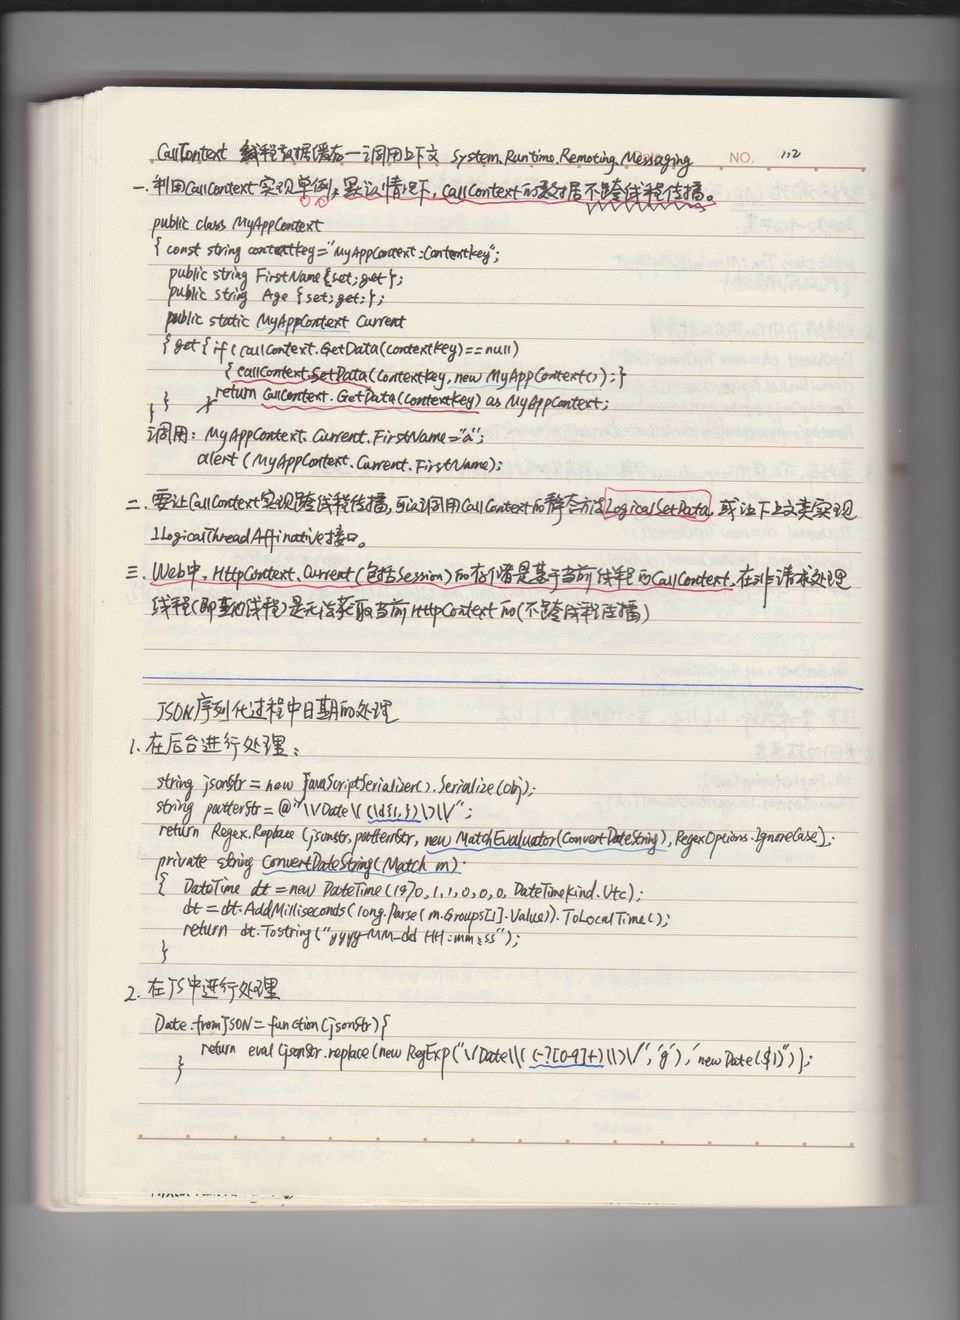 CallContext 线程数据缓存—调用上下文 System.Runtime.Remoting.Messaging NO. 112
一.利用CallContext实现单例,默认情况下,CallContext的数据不跨线程传播。
public class MyAppContext
{ const string contextkey="MyAppContext:ContextKey";
public string FirstName{set;get};
public string Age {set;get;};
public static MyAppContext Current
{get{if(CallContext.GetData(contextkey)==null)
{CallContext.SetData(contextKey,new MyAppContext());}
} }return CallContext.GetData(contextkey) as MyAppContext;
}
调用: MyAppContext.Current.FirstName="a";
alert(MyAppContext.Current.FirstName);
二.要让CallContext实现跨线程传播,可以调用CallContext的静态方法LogicalSetData,或让上下文类实现
ILogicalThreadAffinative接口。
三.Web中,HttpContext.Current(包括Session)的存储是基于当前线程的CallContext,在非请求处理
线程(即其他线程)是无法获取当前HttpContext的(不跨线程传播)
JSON序列化过程中日期的处理
1.在后台进行处理:
string jsonStr=new JavaScriptSerializer().Serialize(obj);
string patterStr=@"\\/Date\((\d{1,})\)\\/";
return Regex.Replace(jsonstr,patternstr,new MatchEvaluator(ConvertDateString),RegexOptions.IgnoreCase);
private string ConvertDateString(Match m)
{ DateTime dt=new DateTime(1970,1,1,0,0,0,DateTimeKind.Utc);
dt=dt.AddMilliseconds(long.Parse(m.Groups[1].Value)).ToLocalTime();
return dt.Tostring("yyyy-MM-dd HH:mm:ss");
}
2.在JS中进行处理
Date.fromJSON=function(jsonStr){
return eval(jsonStr.replace(new RegExp("\/Date\\((-?[0-9]+)\\)\/",'g'),'new Date($1)'));
}